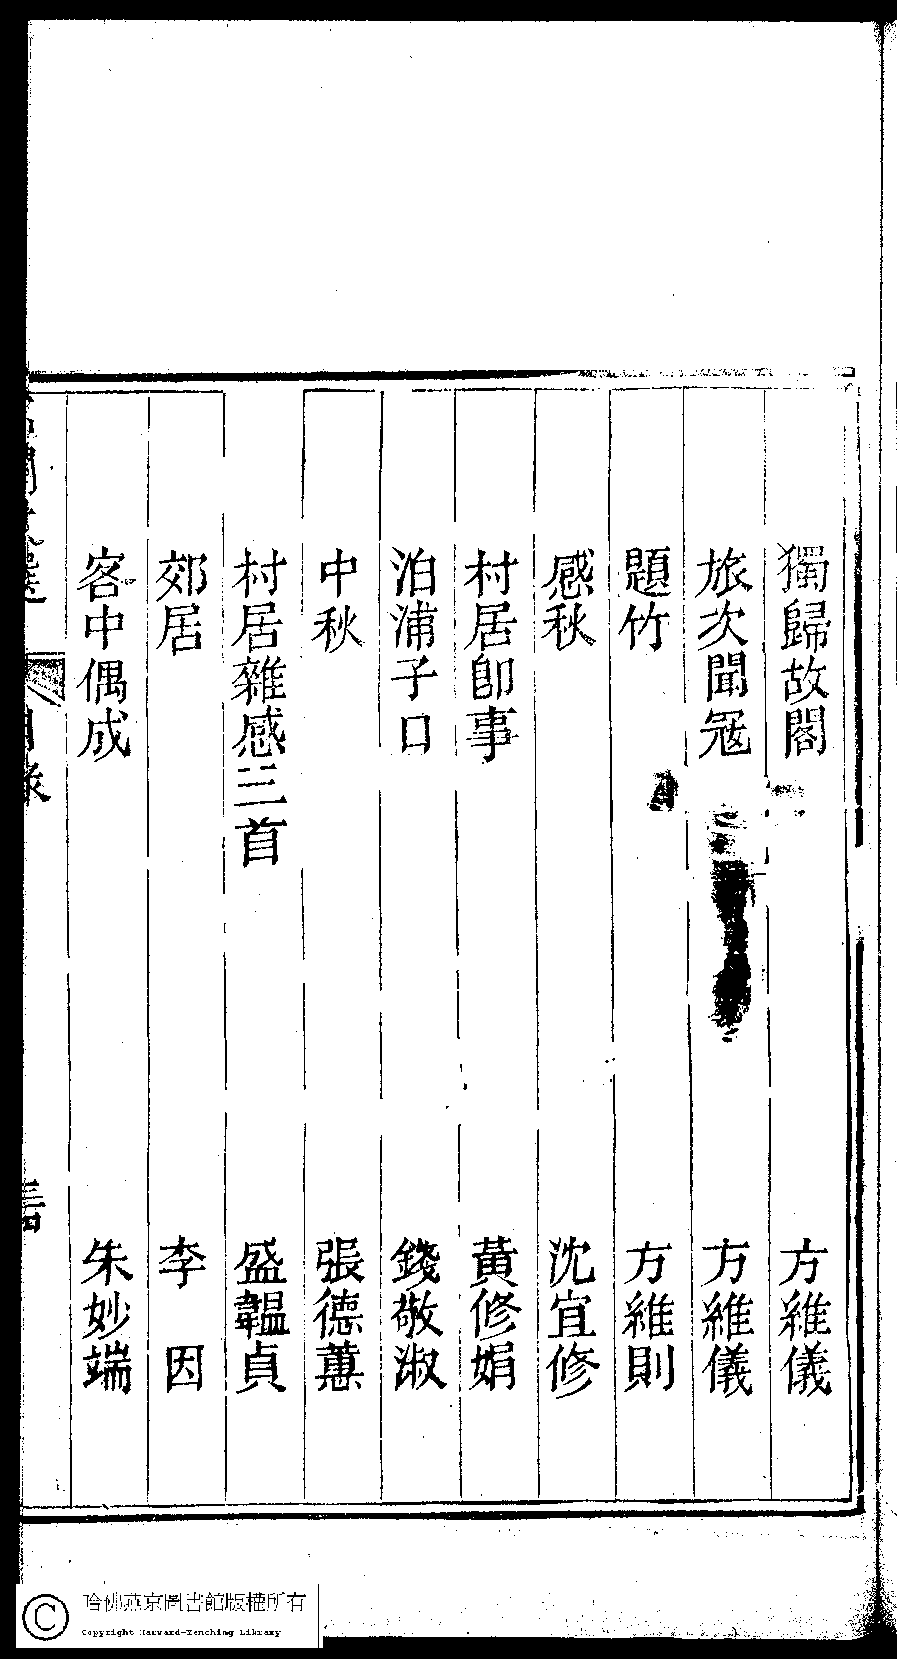 獨歸故閣 方維儀
旅次聞寇 方維儀
題竹 方維則
感秋 沈宜修
村居卽事 黃修娟
泊浦子口 錢敬淑
中秋 張德蕙
村居雜感三首 盛韞貞
郊居 李因
客中偶成 朱妙端
哈佛燕京圖書館版權所有
Copyright Harvard-Yenching Library